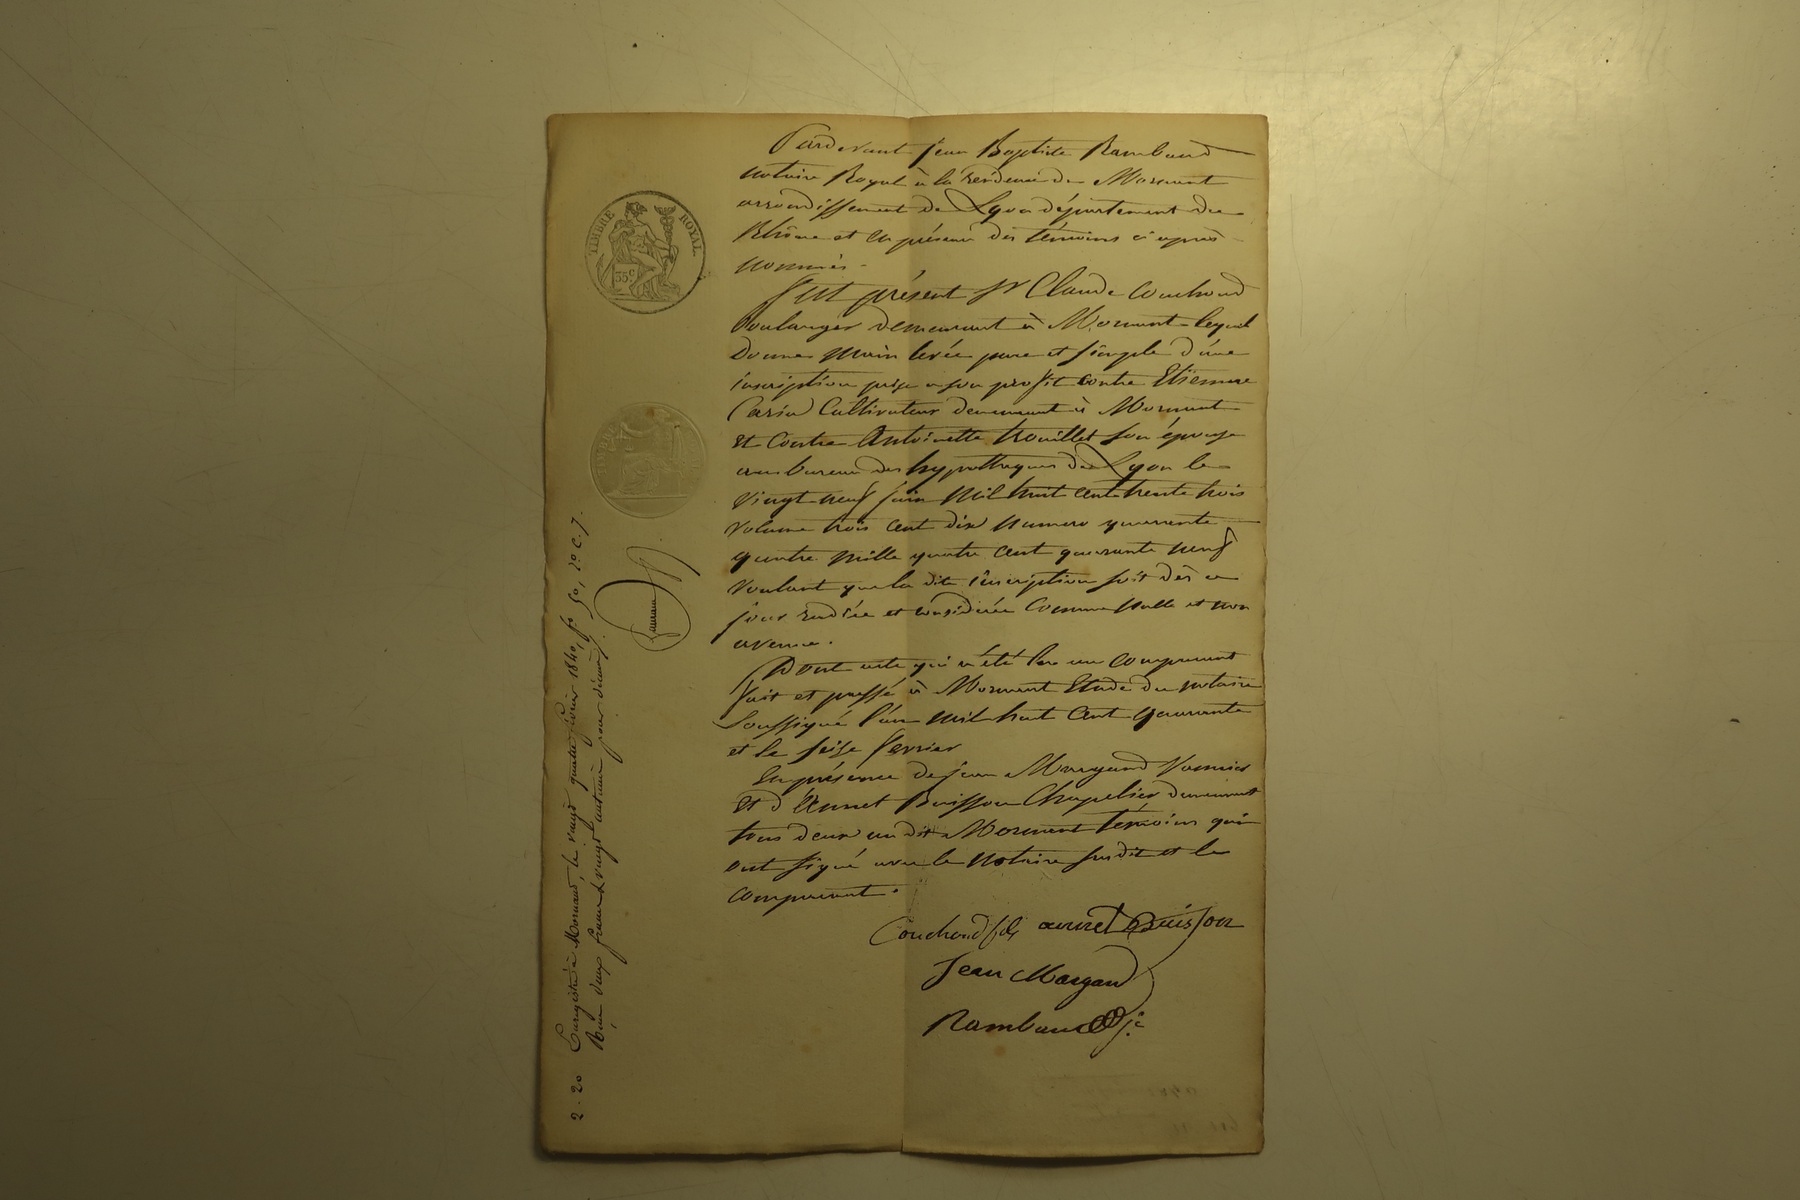 Pardevant Jean Baptiste Rambaud
notaire Royal à la résidence de Mornant
arrondissement de Lyon département du
Rhône et en présence des témoins ci après
nommés.
fut présent Sr Claude Couchoud
boulanger demeurant à Mornant lequel
donne main levée pure et simple d'une
inscription prise a son profit contre Etienne
Cultivateur demeurant à Mornant
et contre Antoinette trouillet son épouse
au bureau des hypotheques de Lyon le
vingt neuf juin mil huit cent trente trois
volume trois cent dix numero quarrente
quatre mille quatre cent quarante neuf
voulant que la dite inscription soit dès ce
jour radiée et considérée comme nulle et non
avenue.
Dont acte qui a été lu au comparant
fait et passé à Mornant Etude du notaire
soussigné l'an mil huit cent quarante
et le seize fevrier
En présence de Jean Margand
et d'Annet Buisson Chapelier demeurant
tous deux au dit Mornant témoins qui
ont signé avec le notaire susdit et le
comparant.
Couchoud fils annet Buisson
Jean Margand
Rambaud
TIMBRE ROYAL
35c
Enregistré à Mornant, le vingt quatre février 1840, fo 50, Vo C. 7.
Reçu deux francs vingt centimes pour décime.
2-20